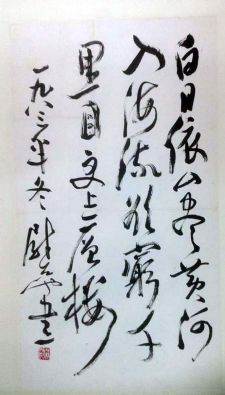 白日依山尽黄河
入海流欲穷千
里目更上一层楼
一九八三年冬